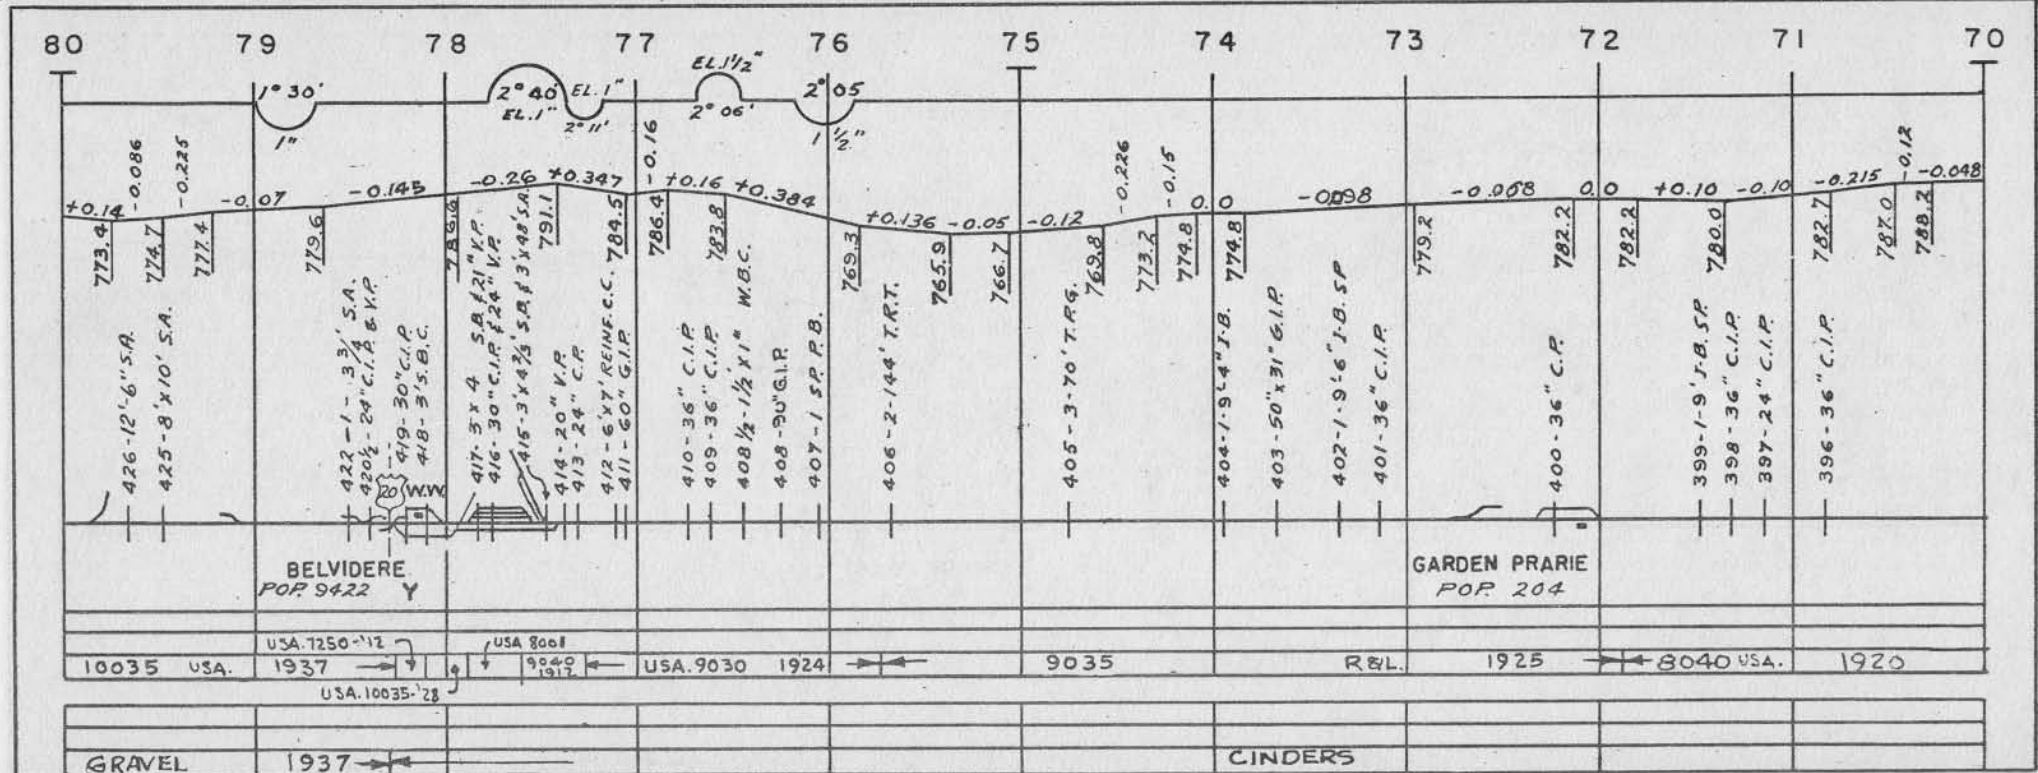 80 79 78 77 76 75 74 73 72 71 70
1° 30'
1"
2° 40'
EL. 1"
EL. 1"
2° 11'
EL. 1 1/2"
2° 06'
2° 05
1 1/2"
+0.14 -0.086 -0.225 -0.07 -0.145 -0.26 +0.347 -0.16 +0.16 +0.384 +0.136 -0.05 -0.12 -0.226 -0.15 0.0 -0.098 -0.068 0.0 +0.10 -0.10 -0.215 -0.12 -0.048
773.4 774.7 777.4 779.6 786.6 791.1 784.5 786.4 783.8 769.3 765.9 766.7 769.8 773.2 774.8 774.8 779.2 782.2 782.2 780.0 782.7 787.0 788.2
426-12'-6" S.A.
425-8'x10' S.A.
422-1-3 3/4' S.A.
420½-24" C.I.P. & V.P.
419-30" C.I.P.
418-3's. B.C.
417-3'x4 S.B. & 21" V.P.
416-30" C.I.P. & 24" V.P.
415-3'x4⅔' S.B. & 3'x48' S.A.
414-20" V.P.
413-24" C.P.
412-6'x7' REINF. C.C.
411-60" G.I.P.
410-36" C.I.P.
409-36" C.I.P.
408½-1½ x 1" W.B.C.
408-90" G.I.P.
407-1 S.P. P.B.
406-2-144' T.R.T.
405-3-70' T.P.G.
404-1-9'-4" I-B.
403-50" x 31" G.I.P.
402-1-9'-6" I-B. SP
401-36" C.I.P.
400-36" C.P.
399-1-9' I-B. S.P.
398-36" C.I.P.
397-24" C.I.P.
396-36" C.I.P.
20
W.W.
BELVIDERE
POP. 9422 Y
GARDEN PRARIE
POP. 204
USA. 7250-'12
USA 8008
10035 USA. 1937
9040
1912
USA. 9030 1924
9035 R&L. 1925
8040 USA. 1920
USA. 10035-'28
GRAVEL 1937
CINDERS